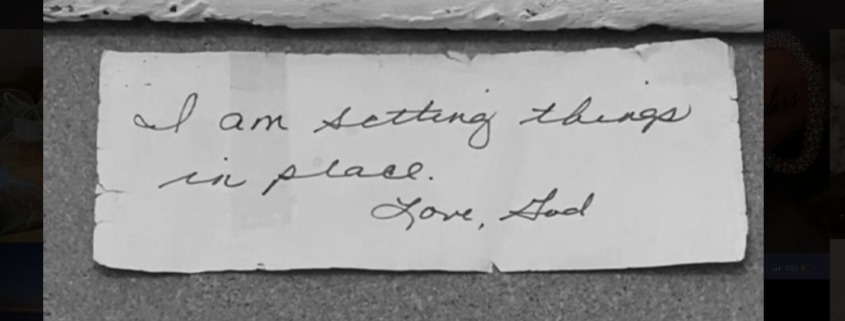 I am setting things
in place.
Love, God